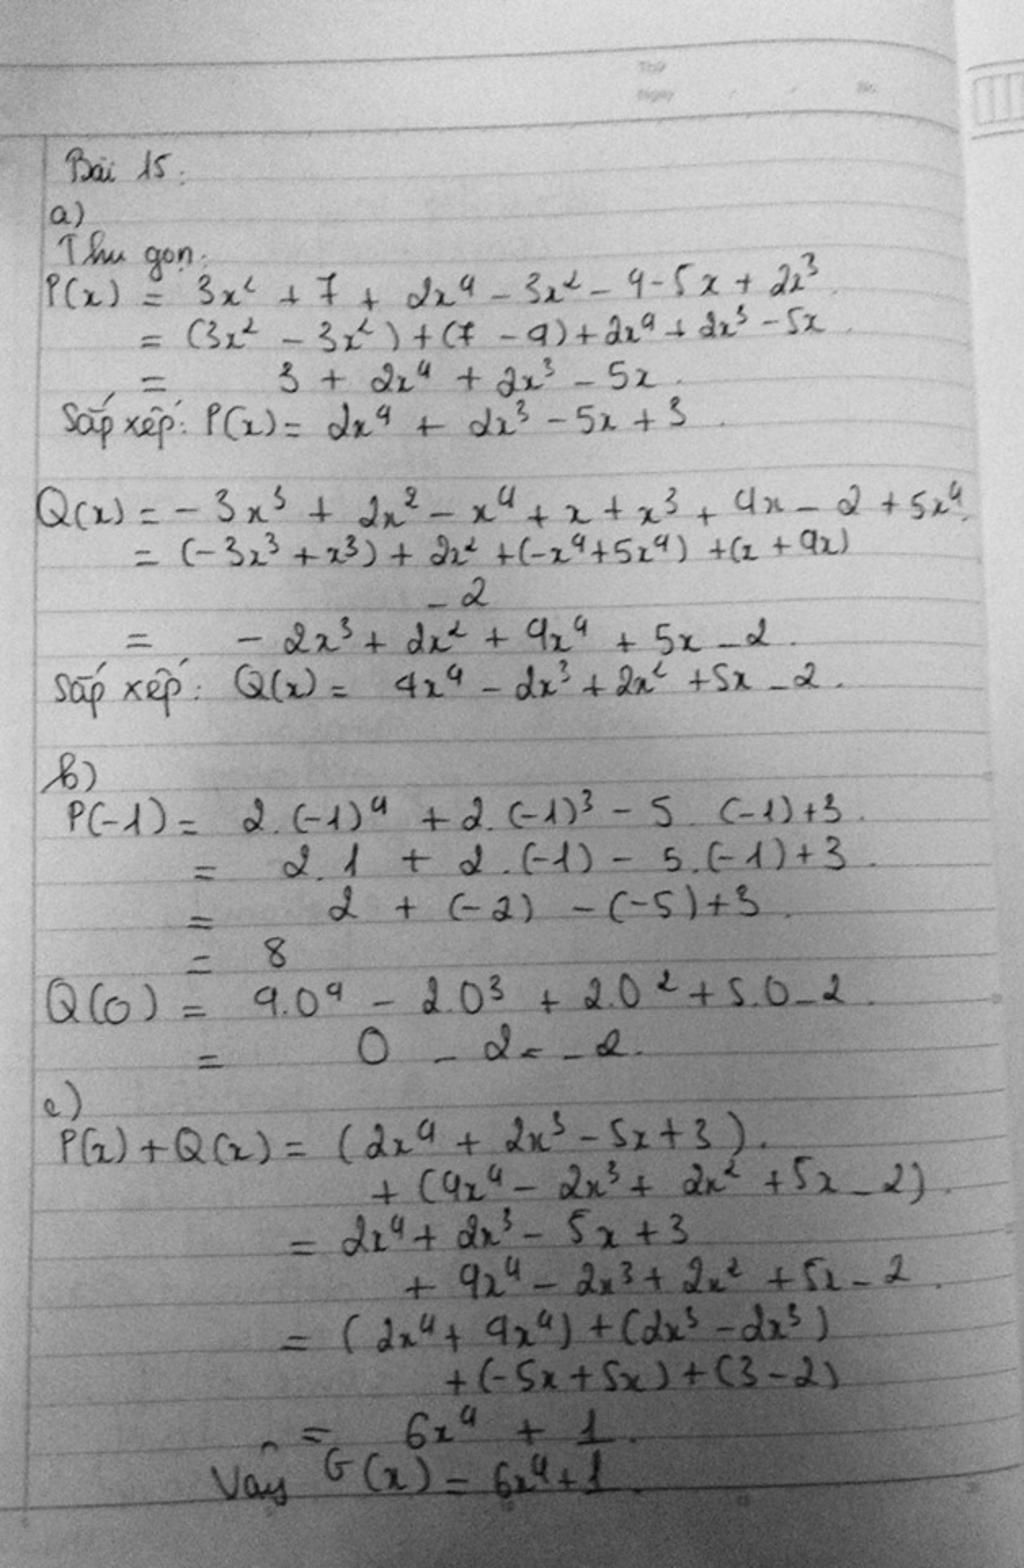 Bài 15:
a)
Thu gọn:
P(x) = 3x² + 7 + 2x⁴ - 3x² - 4 - 5x + 2x³
= (3x² - 3x²) + (7 - 4) + 2x⁴ + 2x³ - 5x.
= 3 + 2x⁴ + 2x³ - 5x.
Sắp xếp: P(x) = 2x⁴ + 2x³ - 5x + 3.
Q(x) = - 3x³ + 2x² - x⁴ + x + x³ + 4x - 2 + 5x⁴.
= (-3x³ + x³) + 2x² + (-x⁴ + 5x⁴) + (x + 4x)
- 2
= - 2x³ + 2x² + 4x⁴ + 5x - 2.
Sắp xếp: Q(x) = 4x⁴ - 2x³ + 2x² + 5x - 2.
b)
P(-1) = 2.(-1)⁴ + 2.(-1)³ - 5.(-1) + 3.
= 2.1 + 2.(-1) - 5.(-1) + 3.
= 2 + (-2) - (-5) + 3.
= 8
Q(0) = 4.0⁴ - 2.0³ + 2.0² + 5.0 - 2.
= 0 - 2 = - 2.
c)
P(x) + Q(x) = (2x⁴ + 2x³ - 5x + 3).
+ (4x⁴ - 2x³ + 2x² + 5x - 2).
= 2x⁴ + 2x³ - 5x + 3
+ 4x⁴ - 2x³ + 2x² + 5x - 2.
= (2x⁴ + 4x⁴) + (2x³ - 2x³)
+ (-5x + 5x) + (3 - 2)
= 6x⁴ + 1.
Vậy G(x) = 6x⁴ + 1.